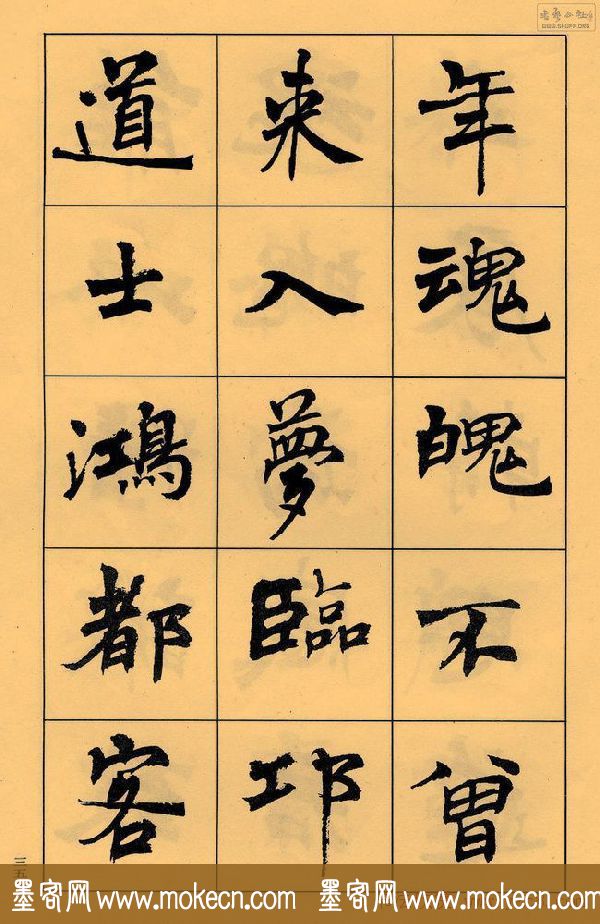 年魂魄不曾
来入夢臨邛
道士鴻都客
三五
墨客网 www.mokecn.com 墨客网 www.mokecn.com